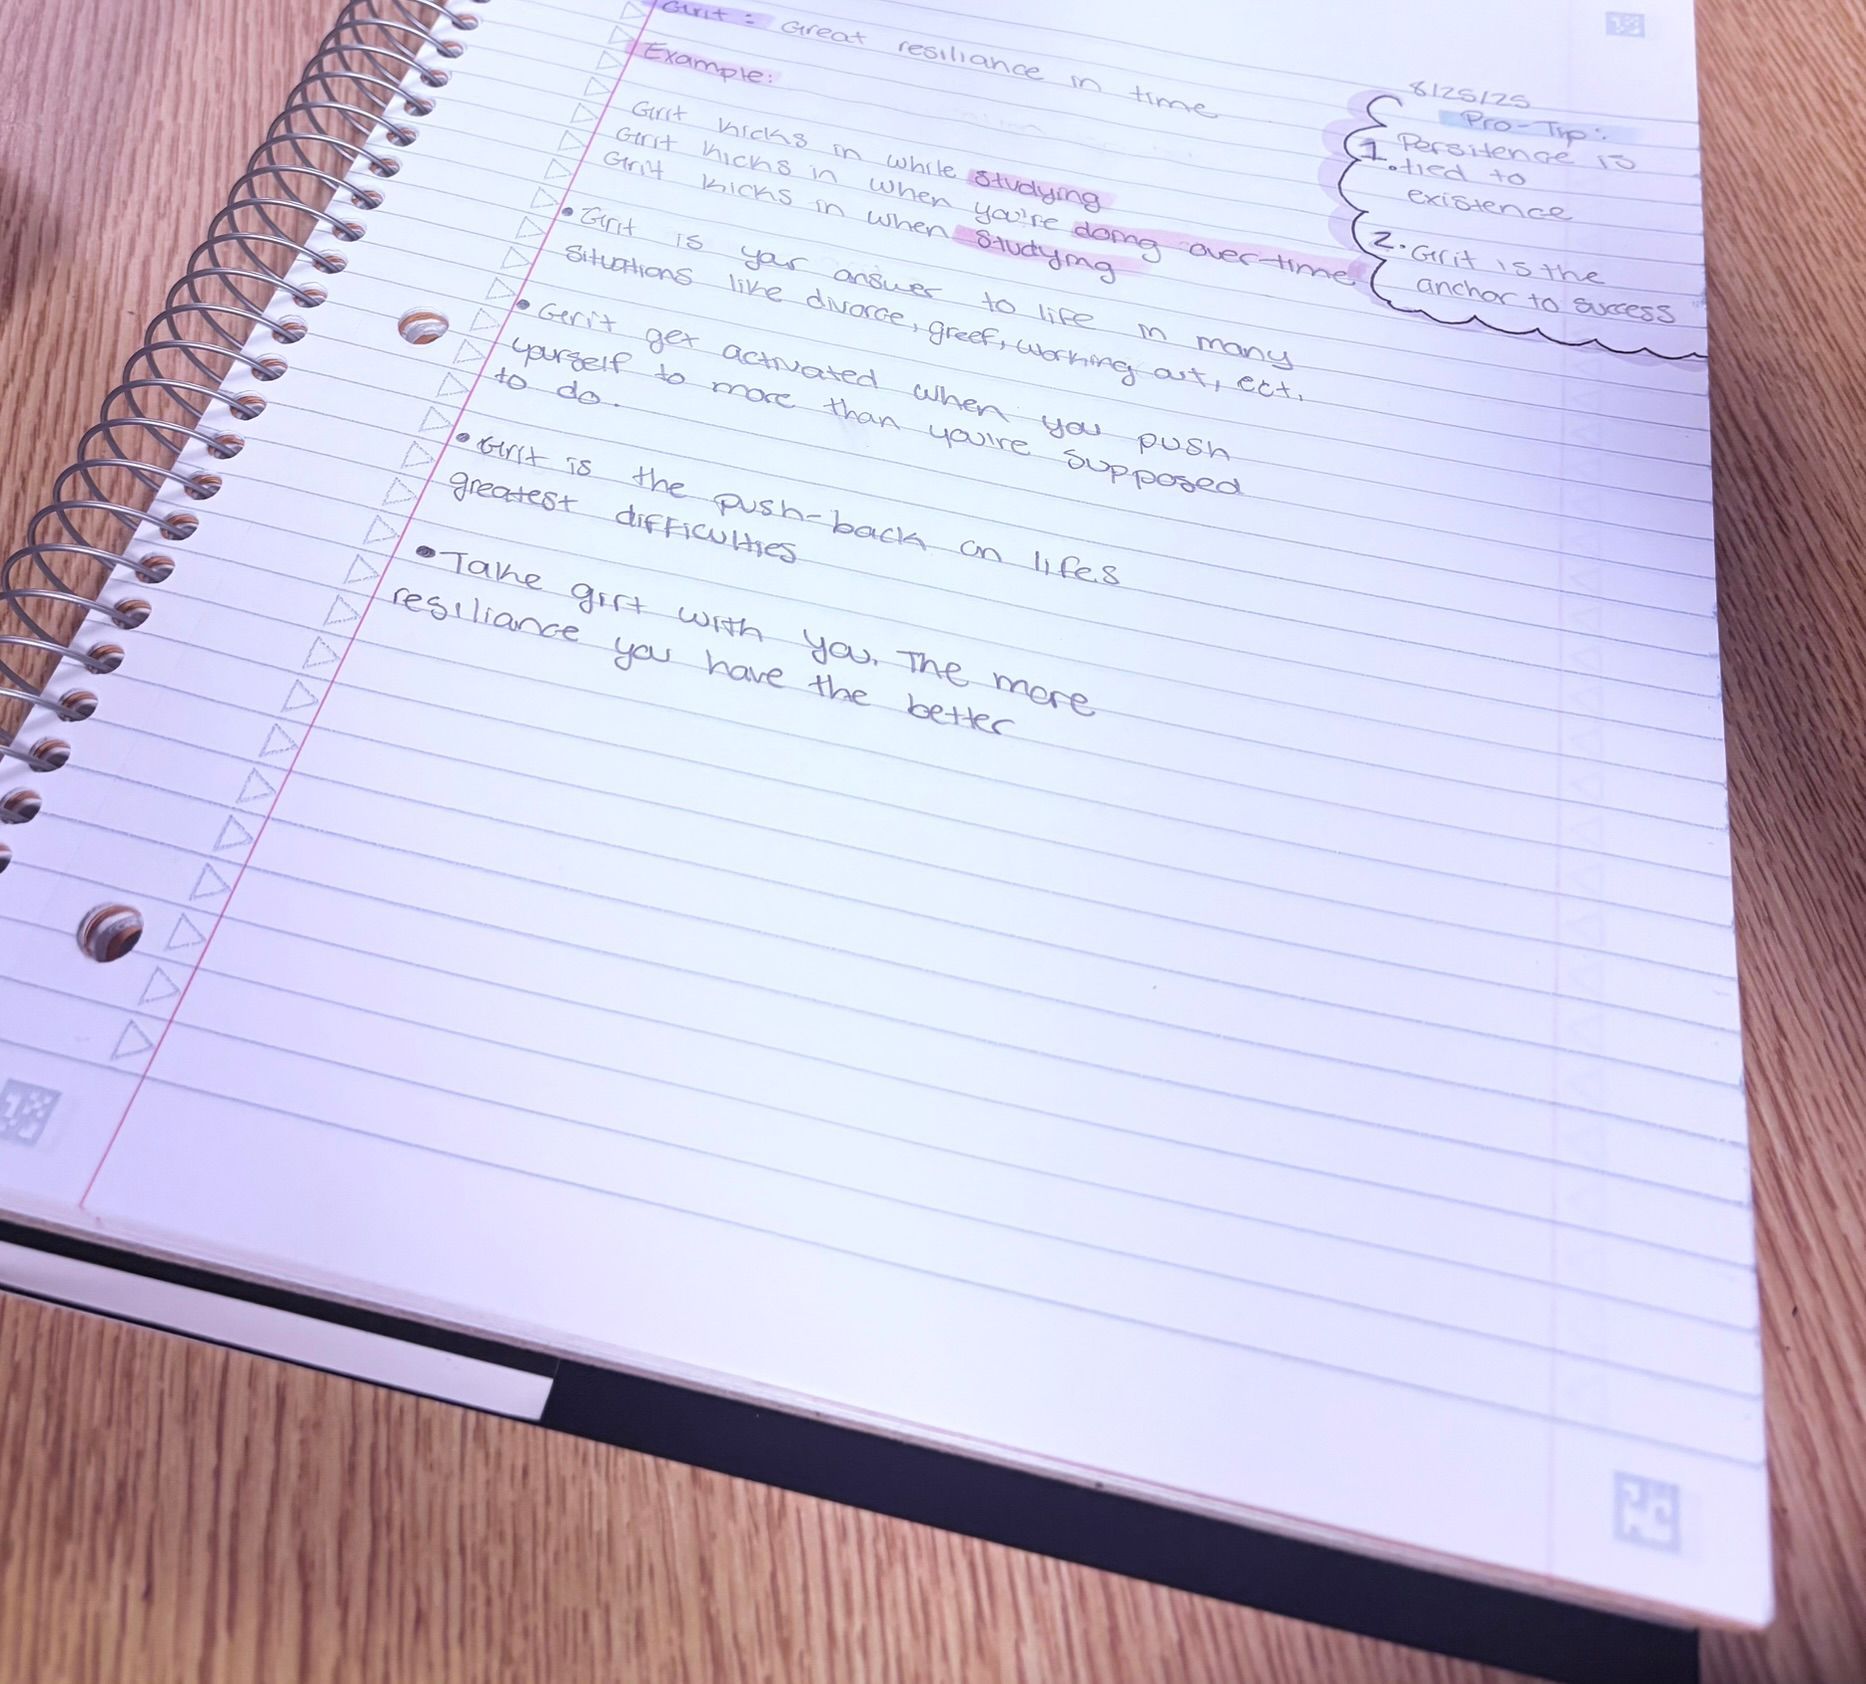 Grit: Great resiliance in time
Example:
Grit kicks in while studying
Grit kicks in when you're doing over-time
Grit kicks in when studying
• Grit is your answer to life in many
situations like divorce, greef, working out, ect.
• Grit get activated when you push
yourself to more than you're supposed
to do.
• Grit is the push-back on lifes
greatest difficulties
• Take grit with you. The more
resiliance you have the better
8/25/25
Pro-Tip:
1. Persitence is
tied to
existence
2. Grit is the
anchor to success